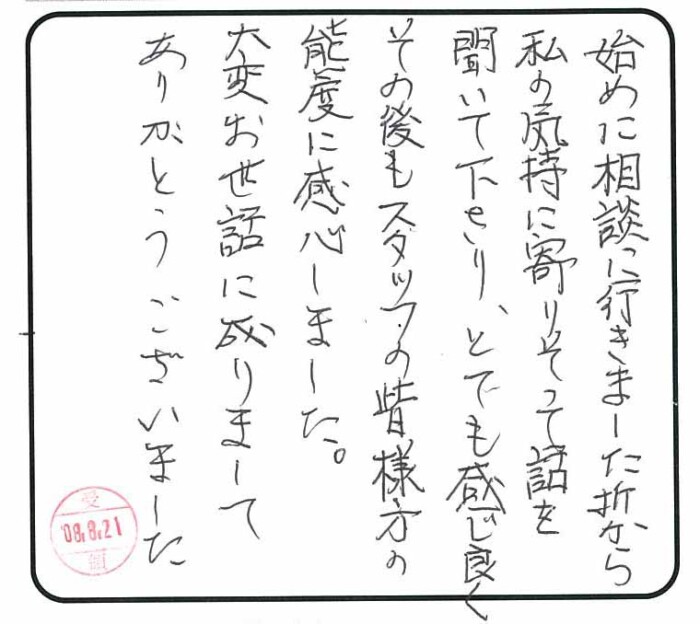 始めに相談に行きました折から
私の気持に寄りそって話を
聞いて下さり、とても感じ良く
その後もスタッフの皆様方の
態度に感心しました。
大変お世話に成りまして
ありがとうございました
受
'08.8.21
領